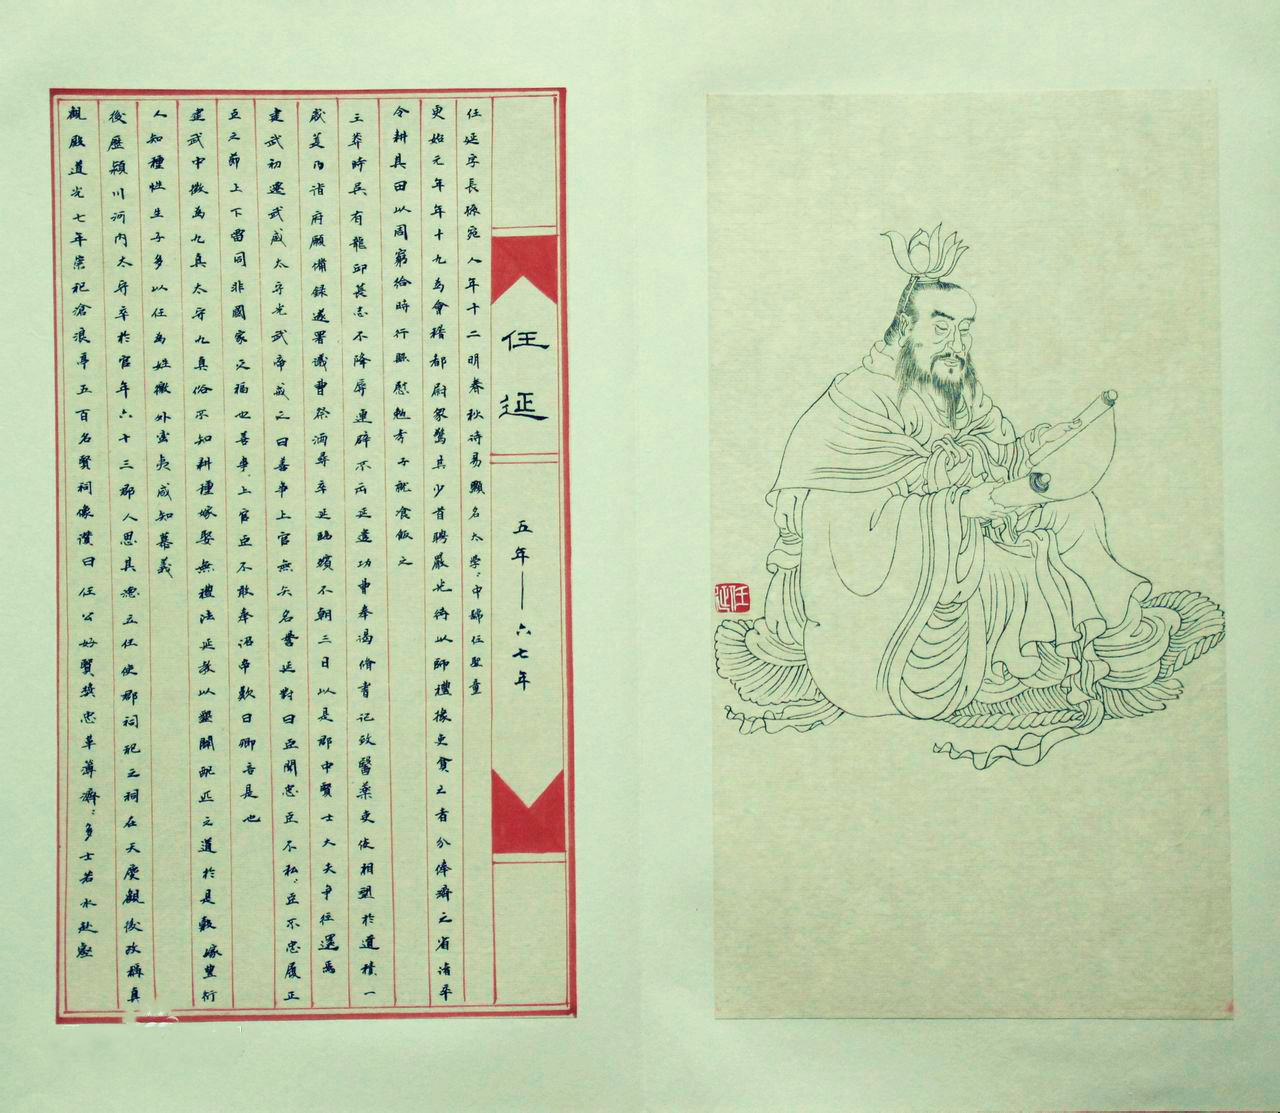 任延
五年——六七年
任延字長孫宛人年十二明春秋詩易顯名太學〻中號任聖童
更始元年年十九為會稽都尉眾驚其少首聘嚴光待以師禮掾吏貧乏者分俸濟之省諸卒
令耕其田以周窮給時行縣慰勉孝子就飡飯之
王莽時吳有龍邱萇志不降辱連辟不云延遣功曹奉謁脩書記致醫藥吏使相望於道積一
歲萇乃詣府願備錄遂署議曹祭酒尋卒延臨殯不朝三日以是郡中賢士大夫爭往還焉
建武初遷武威太守光武帝戒之曰善事上官無失名譽延對曰臣聞忠臣不私〻臣不忠履正
臣之節上下雷同非國家之福也善事上官臣不敢奉詔帝歎曰卿言是也
建武中徵為九真太守九真俗不知耕種嫁娶無禮法延教以墾闢配匹之道於是穀嫁豐衍
人知種性生子多以任為姓徼外蠻夷咸知慕義
後歷潁川河內太守卒於官年六十三郡人思其德立任使郡祠祀之祠在天慶觀後改稱真
觀殿道光七年崇祀滄浪亭五百名賢祠像讚曰任公好賢獎忠革薄濟〻多士若水赴壑
任延